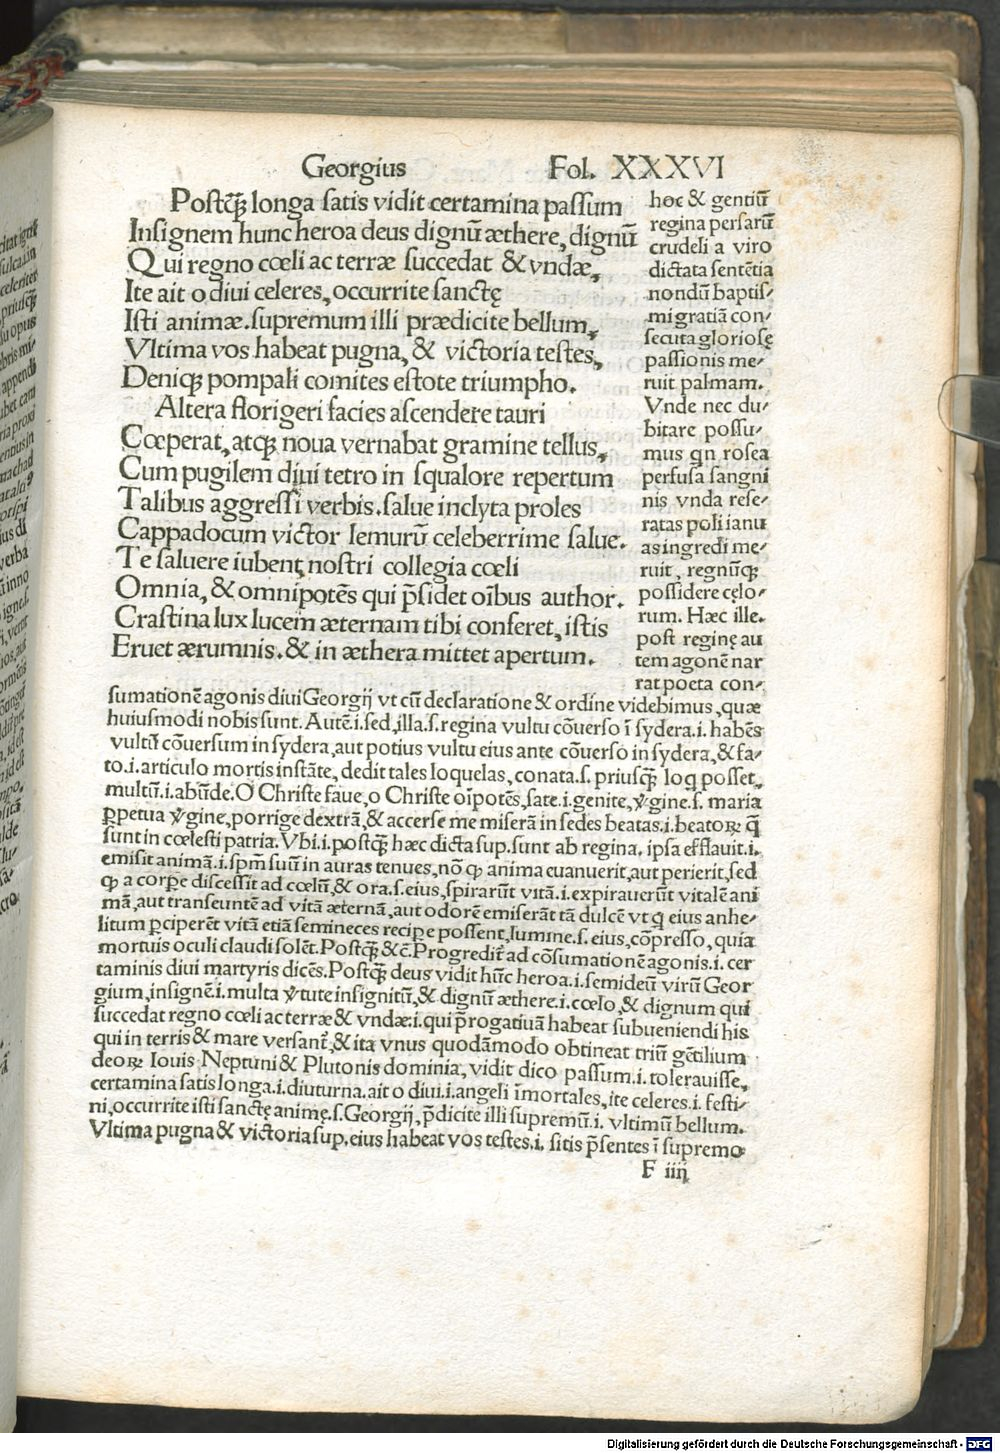 Georgius Fol. XXXVI
Postq̃ꝫ longa satis vidit certamina passum
Insignem hunc heroa deus dignũ æthere, dignũ
Qui regno cœli ac terræ succedat & vndæ,
Ite ait o diui celeres, occurrite sanctę
Isti animæ. supremum illi prædicite bellum,
Vltima vos habeat pugna, & victoria testes,
Deniqꝫ pompali comites estote triumpho.
Altera florigeri facies ascendere tauri
Cœperat, atqꝫ noua vernabat gramine tellus,
Cum pugilem diui tetro in squalore repertum
Talibus aggressi verbis. salue inclyta proles
Cappadocum victor lemurũ celeberrime salue.
Te saluere iubent nostri collegia cœli
Omnia, & omnipotẽs qui p̃sidet oĩbus author.
Crastina lux lucem æternam tibi conferet, istis
Eruet ærumnis. & in æthera mittet apertum.
hoc & gentiũ
regina persarũ
crudeli a viro
dictata sentẽtia
nondũ baptis⸗
mi gratiã con⸗
secuta gloriosę
passionis me⸗
ruit palmam.
Vnde nec du⸗
bitare possu⸗
mus qn rosea
perfusa sangni
nis vnda rese⸗
ratas poli ianu
as ingredi me⸗
ruit, regnũqꝫ
possidere cęlo⸗
rum. Hæc ille.
post reginę au
tem agonẽ nar
rat poeta con⸗
sumationẽ agonis diui Georgij vt cũ declaratione & ordine videbimus, quæ
huiusmodi nobis sunt. Autẽ .i. sed, illa .s. regina vultu cõuerso ĩ sydera .i. habẽs
vultũ cõuersum in sydera, aut potius vultu eius ante cõuerso in sydera, & fa⸗
to .i. articulo mortis instãte, dedit tales loquelas, conata .s. priusq̃ꝫ loq posset,
multũ .i. abũde. O Christe faue, o Christe oĩpotẽs, sate .i. genite, v̾gine .s. maria
ꝑpetua v̾gine, porrige dextrã, & accerse me miserã in sedes beatas .i. beatoꝝ q̃
sunt in cœlesti patria. Vbi .i. postq̃ꝫ hæc dicta sup. sunt ab regina, ipsa efflauit .i.
emisit animã .i. spm̃ suũ in auras tenues, nõ ꝙ anima euanuerit, aut perierit, sed
ꝙ a corpe discessit ad cœlũ, & ora .s. eius, spirarũt vitã .i. expirauerũt vitalẽ ani
mã, aut transeuntẽ ad vitã æternã, aut odorẽ emiserãt tã dulcẽ vt q eius anhe⸗
litum ꝑciperẽt vitã etiã semineces recipe possent, lumine .s. eius, cõpresso, quia
mortuis oculi claudi solẽt. Postq̃ꝫ &c̃. Progredit̃ ad cõsumationẽ agonis .i. cer
taminis diui martyris dicẽs. Postq̃ꝫ deus vidit hũc heroa .i. semideũ virũ Geor
gium, insignẽ .i. multa v̾tute insignitũ, & dignũ æthere .i. cœlo, & dignum qui
succedat regno cœli ac terræ & vndæ .i. qui p̃rogatiuã habeat subueniendi his
qui in terris & mare versant̃, & ita vnus quodãmodo obtineat triũ gẽtilium
deoꝝ Iouis Neptuni & Plutonis dominia, vidit dico passum .i. tolerauisse,
certamina satis longa .i. diuturna. ait o diui .i. angeli ĩmortales, ite celeres .i. festi⸗
ni, occurrite isti sanctę animę .s. Georgij, p̃dicite illi supremũ .i. vltimũ bellum.
Vltima pugna & victoria sup. eius habeat vos testes .i. sitis p̃sentes ĩ supremo
F iiij
Digitalisierung gefördert durch die Deutsche Forschungsgemeinschaft - DFG